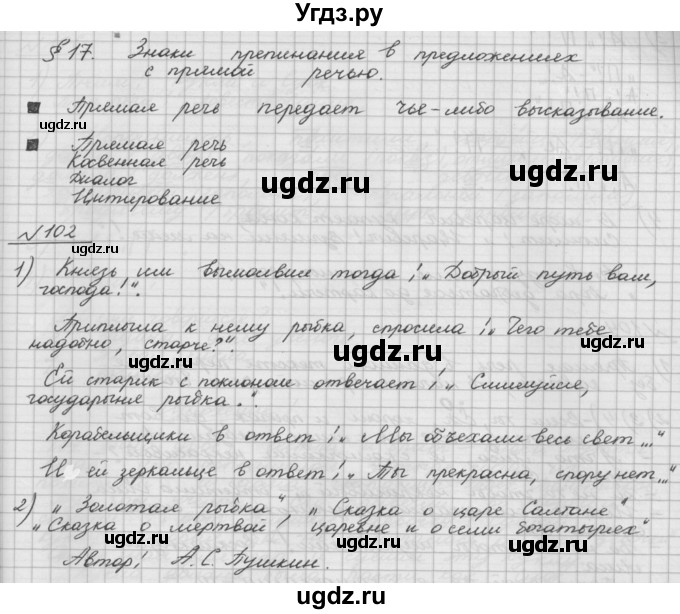 Угдз.ру
§ 17. Знаки препинания в предложениях
с прямой речью.
Прямая речь передает чье-либо высказывание.
ugdz.ru
Прямая речь
Косвенная речь
ugdz.ru
ugdz.ru
Диалог
Цитирование
№ 102
ugdz.ru
1) Князь им вымолвил тогда: „Добрый путь вам,
господа!".
ugdz.ru
Приплыла к нему рыбка, спросила: „Чего тебе
надобно, старче?".
ugdz.ru
Ей старик с поклоном отвечает: „Смилуйся,
государыня рыбка.".
ugdz.ru
Корабельщики в ответ: „Мы объехали весь свет..."
И ей зеркальце в ответ: „Ты прекрасна, спору нет..."
2) „Золотая рыбка", „Сказка о царе Салтане"
„Сказка о мертвой царевне и о семи богатырях"
ugdz.ru
ugdz.ru
Автор: А.С. Пушкин.
ugdz.ru
Угдз.ру